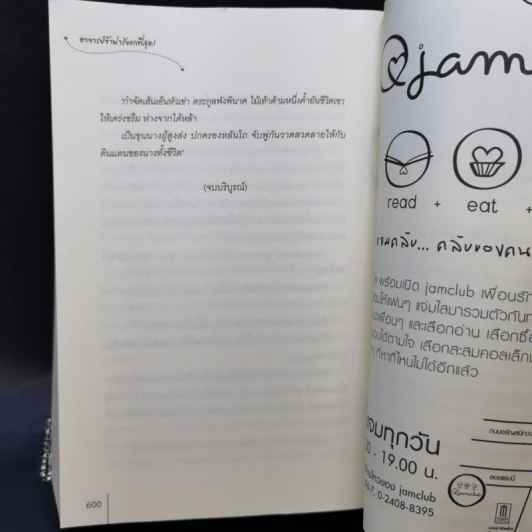 อาจารย์จ๋าน่ารักตกที่สุด!
"กำจัดเส้นเอ็นหัวเข่า ตระกูลพังพินาศ ไม้เท้าด้ามหนึ่งค้ำยันชีวิตเขา
ให้เคร่งขรึม ห่างจากใต้หล้า
เป็นขุนนางผู้สูงส่ง ปกครองหลันโถ จับพู่กันวาดลวดลายให้กับ
ดินแดนของนางทั้งชีวิต"
(จบบริบูรณ์)
600
jam
read + eat +
... คลับของคน
พร้อมเปิด jamclub เพื่อนรัก
ให้แฟนๆ แจ่มใสมารวมตัวกัน
เพื่อนๆ และเลือกอ่าน เลือกซื้อ
ได้ตามใจ เลือกสะสมคอลเล็ก
ที่หาที่ไหนไม่ได้อีกแล้ว
ทุกวัน
- 19.00 น.
ของ jamclub
0-2408-8395
jamclub